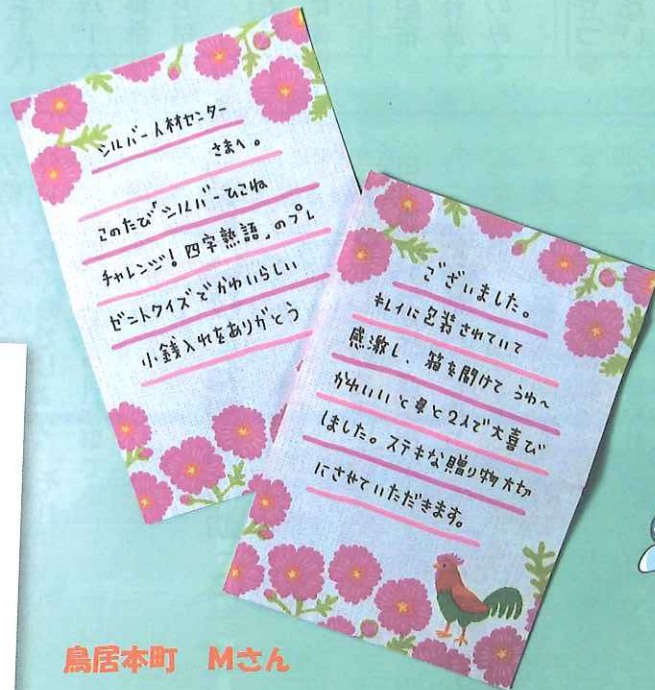 シルバー人材センター
さまへ。
このたび「シルバーひこね
チャレンジ！四字熟語」のプレ
ゼントクイズでかわいらしい
小銭入れをありがとう
ございました。
キレイに包装されていて
感激し、箱を開けて うわ〜
かわいいと母と2人で大喜び
しました。ステキな贈り物大切
にさせていただきます。
鳥居本町 Mさん